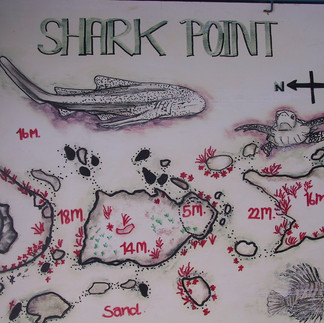 SHARK POINT
N
16M.
18M.
14M.
5M.
22M.
16M
Sand.